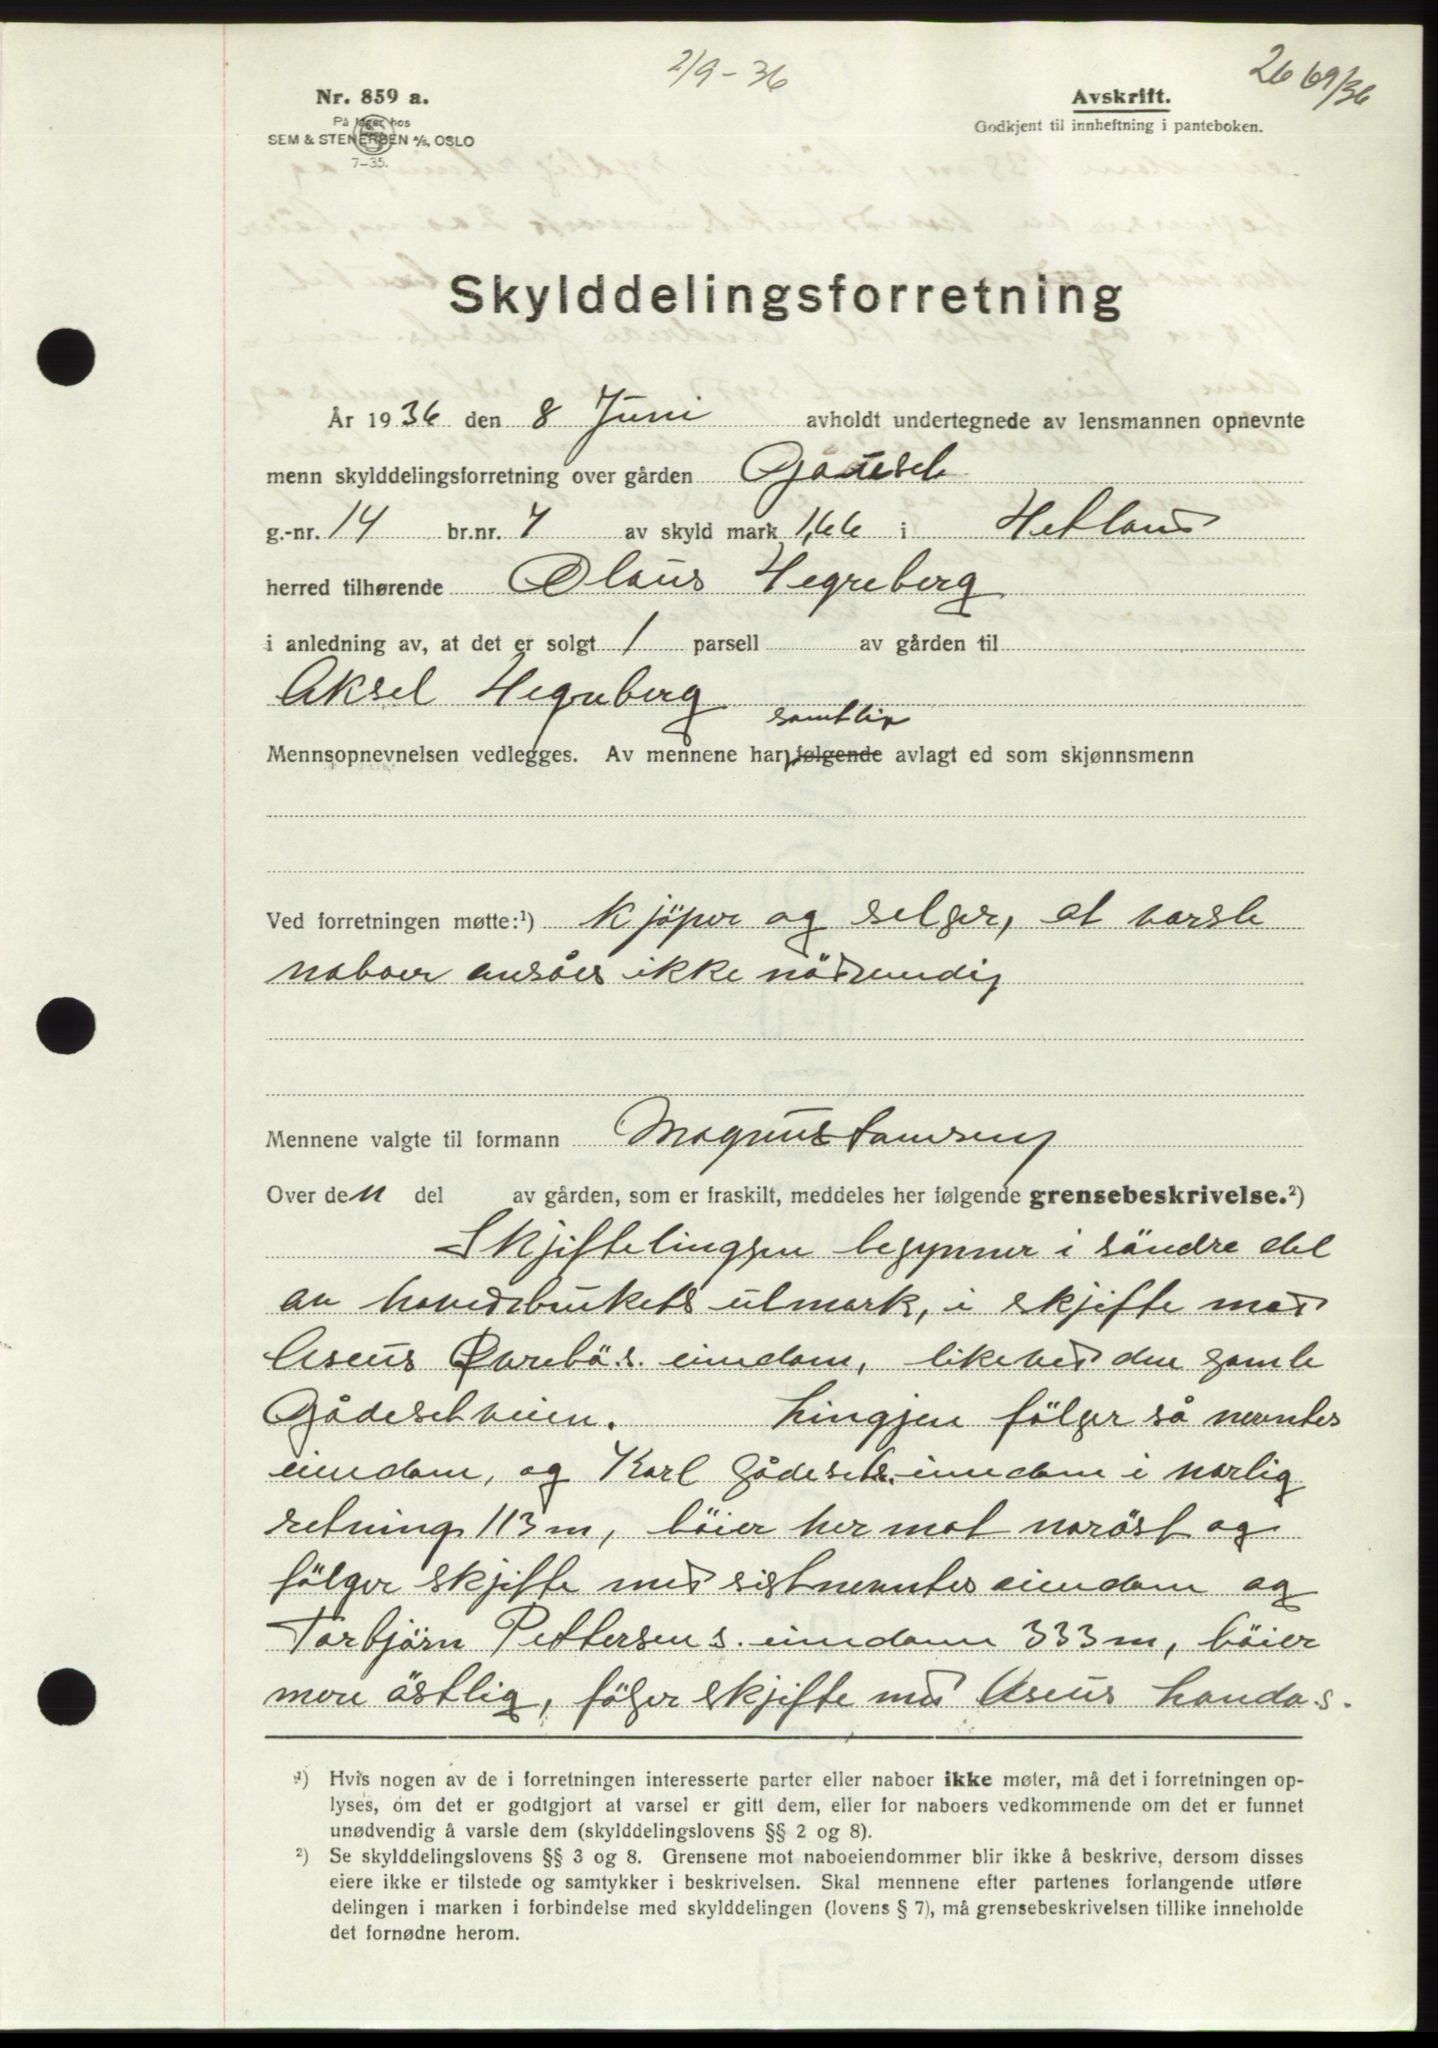 2/9-36
2669/36
Nr. 859 a.
På lager hos
SEM & STENERSEN A/S, OSLO
7-35.
Avskrift.
Godkjent til innheftning i panteboken.
Skylddelingsforretning
År 1936 den 8 Juni avholdt undertegnede av lensmannen opnevnte
menn skylddelingsforretning over gården Gådeset
g.-nr. 14 br.nr. 7 av skyld mark 1,66 i Hetland
herred tilhørende Olaus Hegreberg
i anledning av, at det er solgt 1 parsell av gården til
Aksel Hegreberg
samtlige
Mennsopnevnelsen vedlegges. Av mennene har følgende avlagt ed som skjønnsmenn
Ved forretningen møtte:¹) kjöper og selger, at varsle
naboer ansåes ikke nödvendig
Mennene valgte til formann Magnus
Over den del av gården, som er fraskilt, meddeles her følgende grensebeskrivelse.²)
Skjiftelingjen begynner i söndre del
av hovedsbrukets utmark, i skjifte med
Aseus eiendom, likeved den gamle
Gådesetveien. Lingjen fölger så nevntes
eiendom, og Karl Gådesets eiendom i norlig
retning 113 m, böier her mot noröst og
fölger skjifte med sistnevntes eiendom og
Torbjörn Pettersens. eiendom 333 m, böier
mere östlig, fölger skjifte med Aseus Landas.
¹) Hvis nogen av de i forretningen interesserte parter eller naboer ikke møter, må det i forretningen op-
lyses, om det er godtgjort at varsel er gitt dem, eller for naboers vedkommende om det er funnet
unødvendig å varsle dem (skylddelingslovens §§ 2 og 8).
²) Se skylddelingslovens §§ 3 og 8. Grensene mot naboeiendommer blir ikke å beskrive, dersom disses
eiere ikke er tilstede og samtykker i beskrivelsen. Skal mennene efter partenes forlangende utføre
delingen i marken i forbindelse med skylddelingen (lovens § 7), må grensebeskrivelsen tillike inneholde
det fornødne herom.